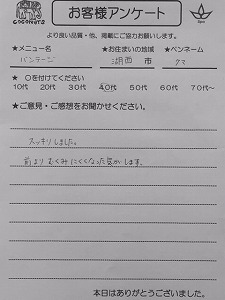 COCONUTS
お客様アンケート
Spa
より良い品質・他、掲載にご協力お願いします。
★メニュー名 ★お住まいの地域 ★ペンネーム
バンテージ 湖西 市 クマ
★ ○を付けてください
10代 20代 30代 40代 50代 60代 70代～
★ご意見・ご感想をお聞かせください。
スッキリしました。
前より むくみにくくなった気がします。
本日はありがとうございました。